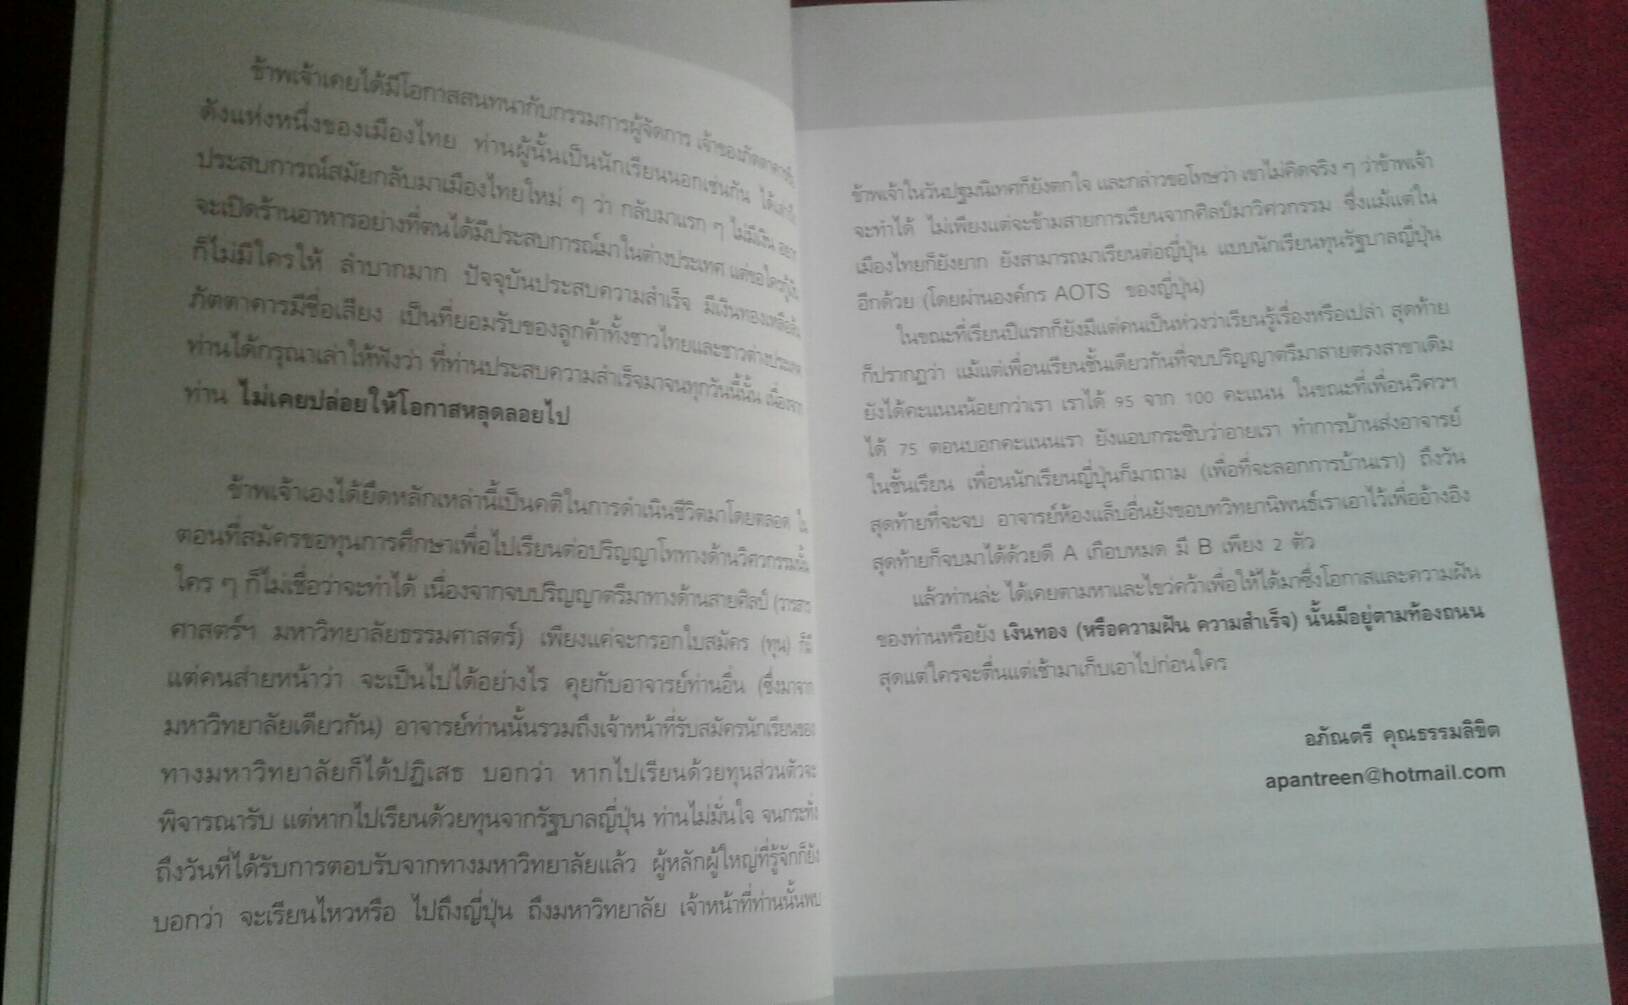 ข้าพเจ้าเคยได้มีโอกาสสนทนากับกรรมการผู้จัดการ เจ้าของภัตตาคารชื่อ
ดังแห่งหนึ่งของเมืองไทย ท่านผู้นั้นเป็นนักเรียนนอกเช่นกัน ได้เล่าถึง
ประสบการณ์สมัยกลับมาเมืองไทยใหม่ ๆ ว่า กลับมาแรก ๆ ไม่มีเงิน อยาก
จะเปิดร้านอาหารอย่างที่ตนได้มีประสบการณ์มาในต่างประเทศ แต่ขอใครกู้เงิน
ก็ไม่มีใครให้ ลำบากมาก ปัจจุบันประสบความสำเร็จ มีเงินทองเหลือล้น
ภัตตาคารมีชื่อเสียง เป็นที่ยอมรับของลูกค้าทั้งชาวไทยและชาวต่างประเทศ
ท่านได้กรุณาเล่าให้ฟังว่า ที่ท่านประสบความสำเร็จมาจนทุกวันนี้นั้น เนื่องจาก
ท่าน ไม่เคยปล่อยให้โอกาสหลุดลอยไป
ข้าพเจ้าเองได้ยึดหลักเหล่านี้เป็นคติในการดำเนินชีวิตมาโดยตลอด ใน
ตอนที่สมัครขอทุนการศึกษาเพื่อไปเรียนต่อปริญญาโททางด้านวิศวกรรมนั้น
ใคร ๆ ก็ไม่เชื่อว่าจะทำได้ เนื่องจากจบปริญญาตรีมาทางด้านสายศิลป์ (วารสาร
ศาสตร์ฯ มหาวิทยาลัยธรรมศาสตร์) เพียงแค่จะกรอกใบสมัคร (ทุน) ก็มี
แต่คนส่ายหน้าว่า จะเป็นไปได้อย่างไร คุยกับอาจารย์ท่านอื่น (ซึ่งมาจาก
มหาวิทยาลัยเดียวกัน) อาจารย์ท่านนั้นรวมถึงเจ้าหน้าที่รับสมัครนักเรียนของ
ทางมหาวิทยาลัยก็ได้ปฏิเสธ บอกว่า หากไปเรียนด้วยทุนส่วนตัวจะ
พิจารณารับ แต่หากไปเรียนด้วยทุนจากรัฐบาลญี่ปุ่น ท่านไม่มั่นใจ จนกระทั่ง
ถึงวันที่ได้รับการตอบรับจากทางมหาวิทยาลัยแล้ว ผู้หลักผู้ใหญ่ที่รู้จักก็ยัง
บอกว่า จะเรียนไหวหรือ ไปถึงญี่ปุ่น ถึงมหาวิทยาลัย เจ้าหน้าที่ท่านนั้นพบ
ข้าพเจ้าในวันปฐมนิเทศก็ยังตกใจ และกล่าวขอโทษว่า เขาไม่คิดจริง ๆ ว่าข้าพเจ้า
จะทำได้ ไม่เพียงแต่จะข้ามสายการเรียนจากศิลป์มาวิศวกรรม ซึ่งแม้แต่ใน
เมืองไทยก็ยังยาก ยังสามารถมาเรียนต่อญี่ปุ่น แบบนักเรียนทุนรัฐบาลญี่ปุ่น
อีกด้วย (โดยผ่านองค์กร AOTS ของญี่ปุ่น)
ในขณะที่เรียนปีแรกก็ยังมีแต่คนเป็นห่วงว่าเรียนรู้เรื่องหรือเปล่า สุดท้าย
ก็ปรากฏว่า แม้แต่เพื่อนเรียนชั้นเดียวกันที่จบปริญญาตรีมาสายตรงสาขาเดิม
ยังได้คะแนนน้อยกว่าเรา เราได้ 95 จาก 100 คะแนน ในขณะที่เพื่อนวิศวฯ
ได้ 75 ตอนบอกคะแนนเรา ยังแอบกระซิบว่าอายเรา ทำการบ้านส่งอาจารย์
ในชั้นเรียน เพื่อนนักเรียนญี่ปุ่นก็มาถาม (เพื่อที่จะลอกการบ้านเรา) ถึงวัน
สุดท้ายที่จะจบ อาจารย์ห้องแล็บอื่นยังขอบทวิทยานิพนธ์เราเอาไว้เพื่ออ้างอิง
สุดท้ายก็จบมาได้ด้วยดี A เกือบหมด มี B เพียง 2 ตัว
แล้วท่านล่ะ ได้เคยตามหาและไขว่คว้าเพื่อให้ได้มาซึ่งโอกาสและความฝัน
ของท่านหรือยัง เงินทอง (หรือความฝัน ความสำเร็จ) นั้นมีอยู่ตามท้องถนน
สุดแต่ใครจะตื่นแต่เช้ามาเก็บเอาไปก่อนใคร
อภัณตรี คุณธรรมลิขิต
apantreen@hotmail.com